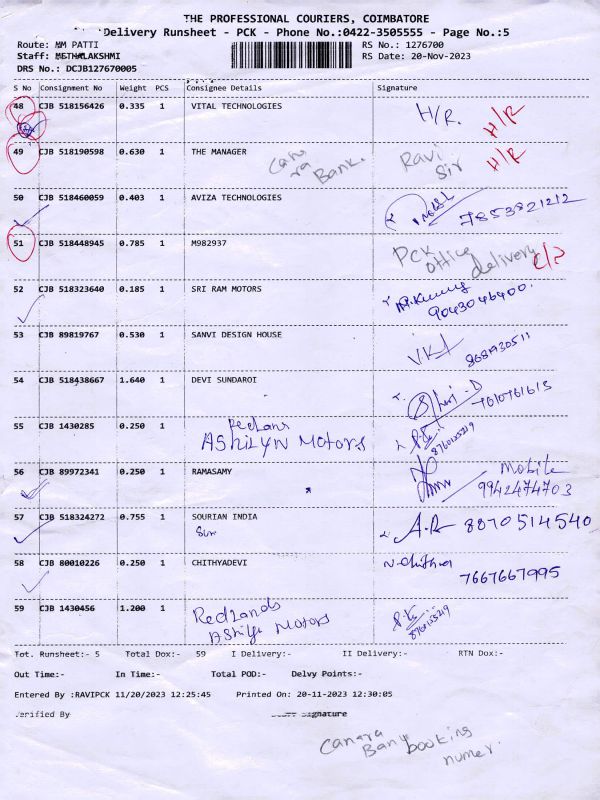 THE PROFESSIONAL COURIERS, COIMBATORE
Delivery Runsheet - PCK - Phone No.:0422-3505555 - Page No.:5
Route: MM PATTI RS No.: 1276700
Staff: METHALAKSHMI RS Date: 20-Nov-2023
DRS No.: DCJB127670005
S No Consignment No Weight PCS Consignee Details Signature
48 CJB 518156426 0.335 1 VITAL TECHNOLOGIES H/R. H/R
49 CJB 518190598 0.630 1 THE MANAGER Canara Bank. Ravi Sir H/R
50 CJB 518460059 0.403 1 AVIZA TECHNOLOGIES 7853821212
51 CJB 518448945 0.785 1 M982937 PCK office delivery
52 CJB 518323640 0.185 1 SRI RAM MOTORS 9043046400.
53 CJB 89819767 0.530 1 SANVI DESIGN HOUSE 8681930511
54 CJB 518438667 1.640 1 DEVI SUNDAROI 7010761613
55 CJB 1430285 0.250 1 Ashilyn Motors 8760135219
56 CJB 89972341 0.250 1 RAMASAMY Mobile 9942474703
57 CJB 518324272 0.755 1 SOURIAN INDIA 8870514540
58 CJB 80010226 0.250 1 CHITHYADEVI 7667667995
59 CJB 1430456 1.200 1 Redlands Motors 8760135219
Tot. Runsheet:- 5 Total Dox:- 59 I Delivery:- II Delivery:- RTN Dox:-
Out Time:- In Time:- Total POD:- Delvy Points:-
Entered By :RAVIPCK 11/20/2023 12:25:45 Printed On: 20-11-2023 12:30:05
Verified By Signature
Canara Bany booking numer.